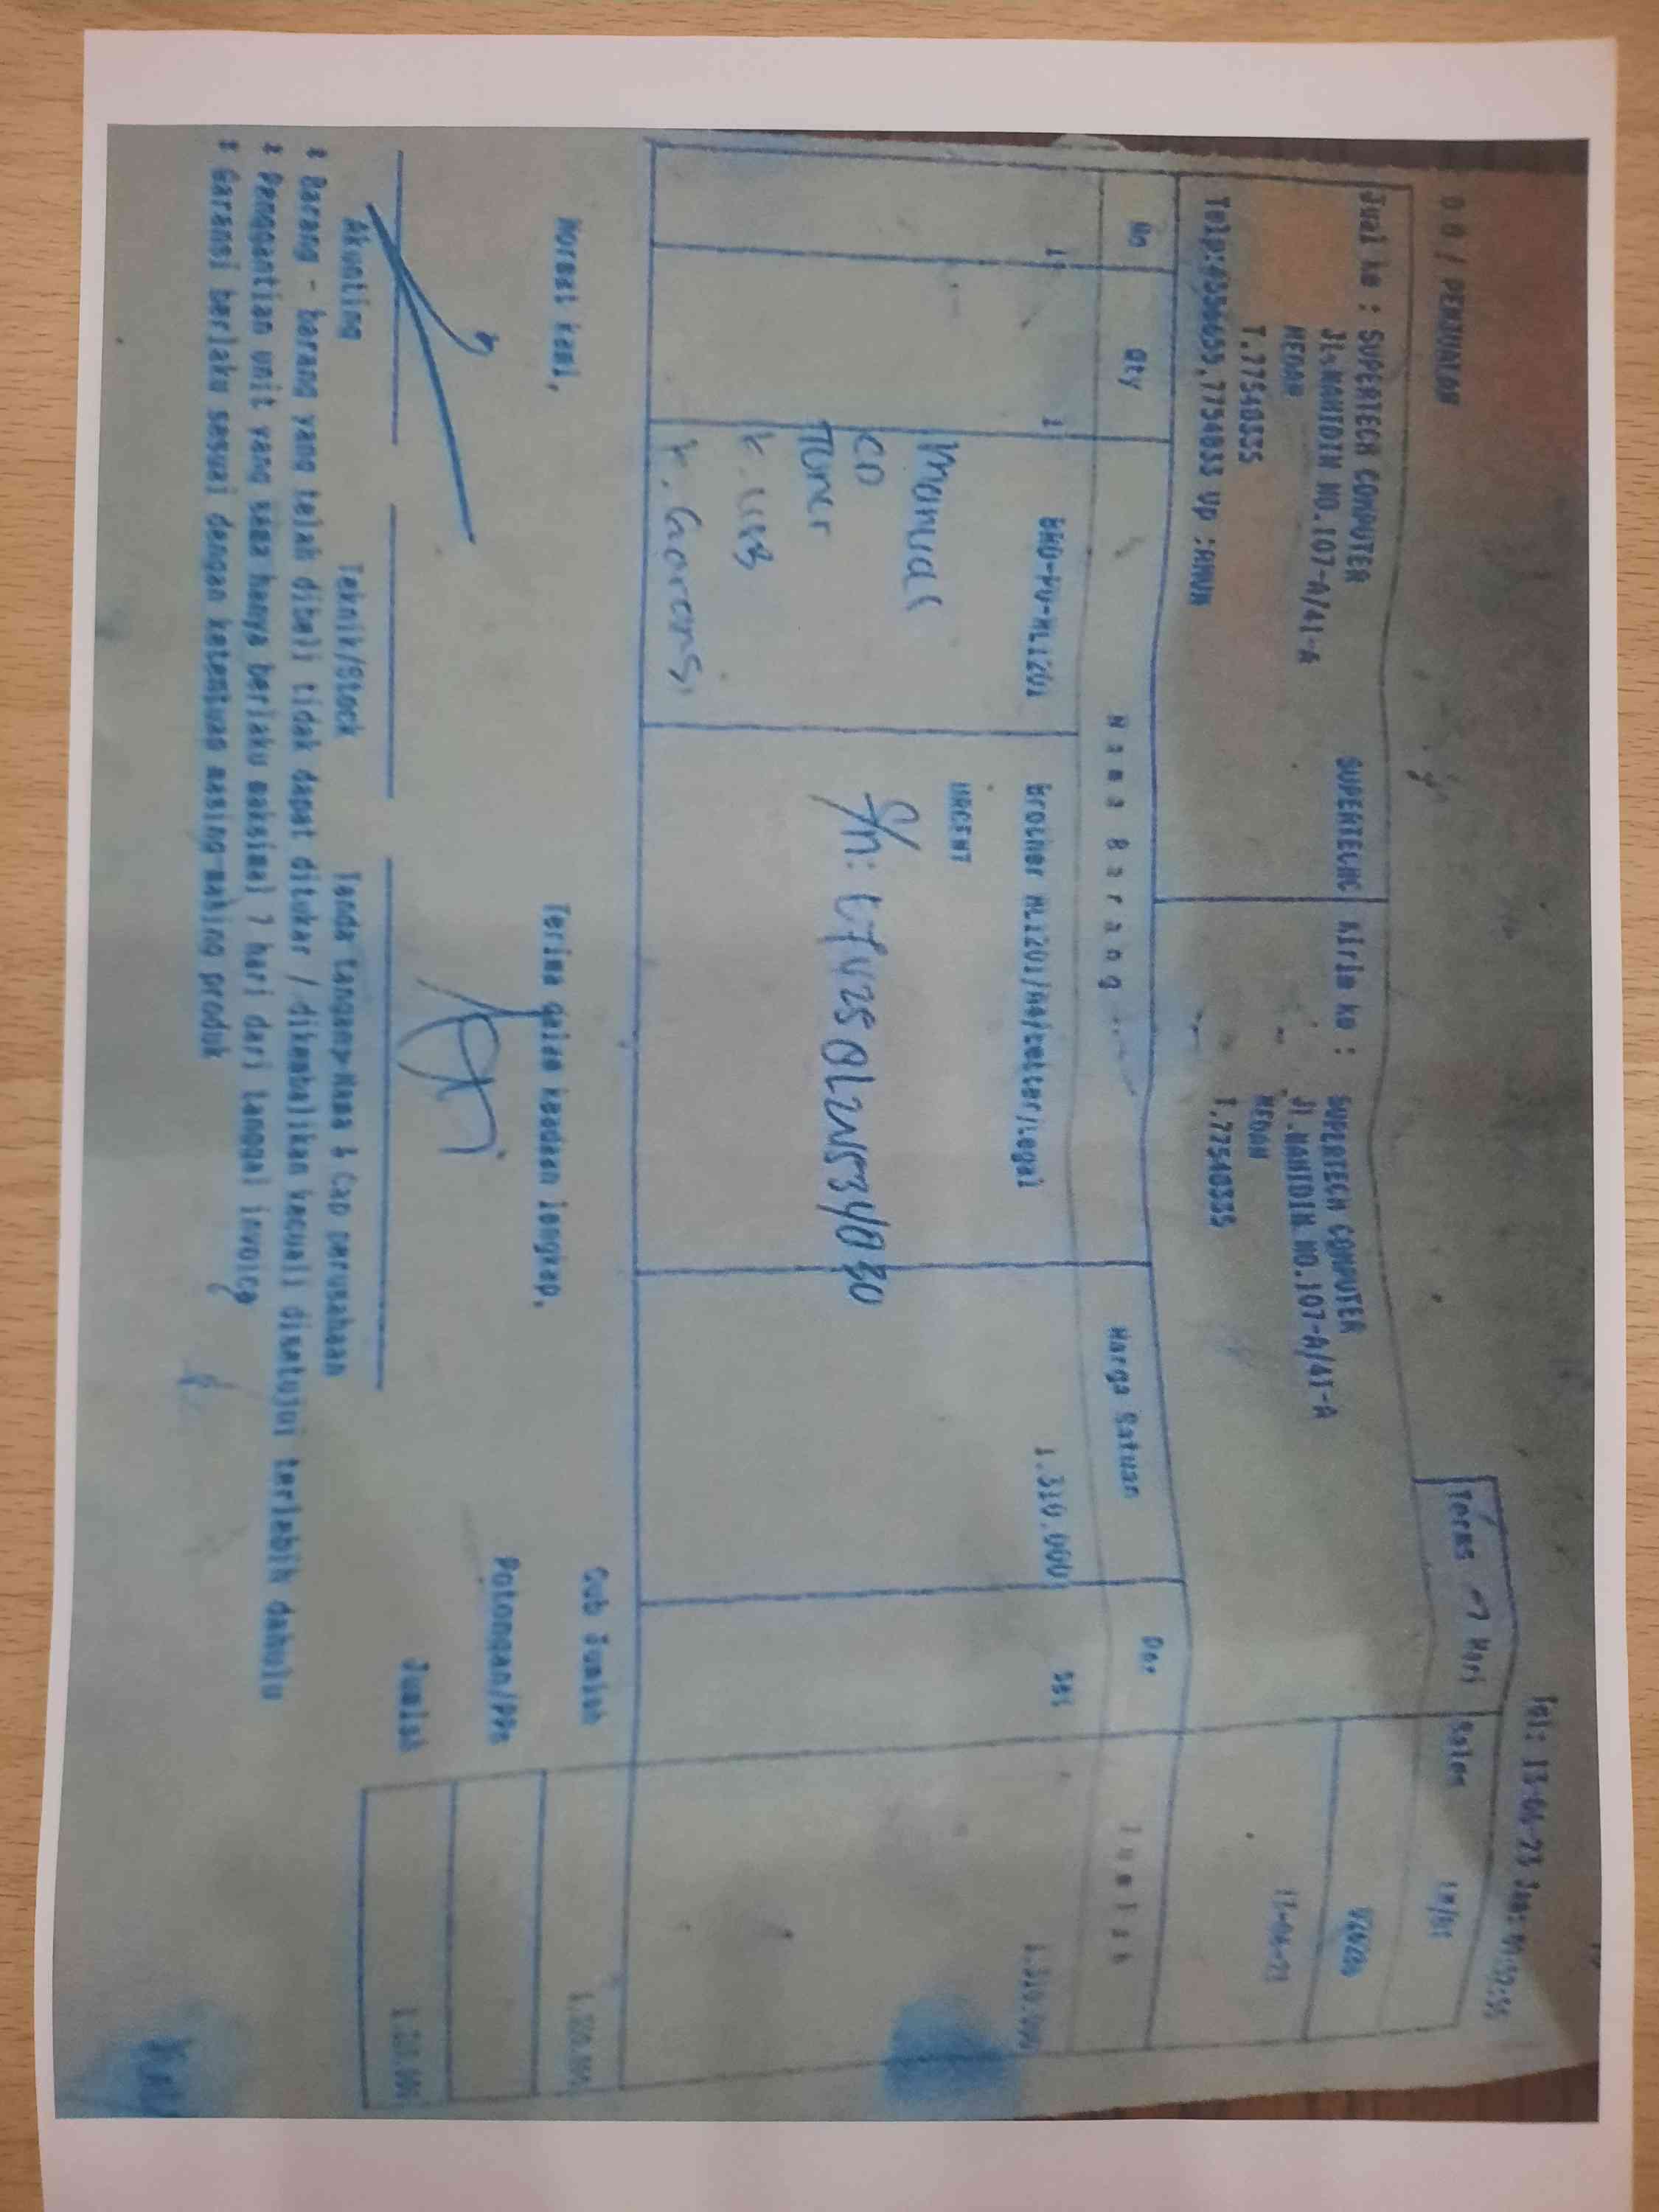 PENJUALAN
Jual ke : SUPERTECH COMPUTER
Jl.NAHTDIN NO.107-A/41-A
MEDAN
T.77540555
SUPERTECHC
Kirim ke : SUPERTECH COMPUTER
Jl.NAHTDIN NO.107-A/41-A
MEDAN
T.77540555
Terms 7 Hari
Sales
No
Qty
Nama Barang
Harga Satuan
Jumlah
1
1
BRO-PU-HL1201
Brother HL1201/A4/Letter/Legal
1.310.000
1.310.000
URGENT
manual
CD
Toner
K. USB
K. Garansi
S/n:
Sub Jumlah
Potongan/PPn
Jumlah
Hormat kami,
Terima dalam keadaan lengkap,
Akunting
Teknik/Stock
Tanda tangan+Nama & Cap perusahaan
* Barang - barang yang telah dibeli tidak dapat ditukar / dikembalikan kecuali disetujui terlebih dahulu
* Penggantian unit yang sama hanya berlaku maksimal 7 hari dari tanggal invoice
* Garansi berlaku sesuai dengan ketentuan masing-making produk